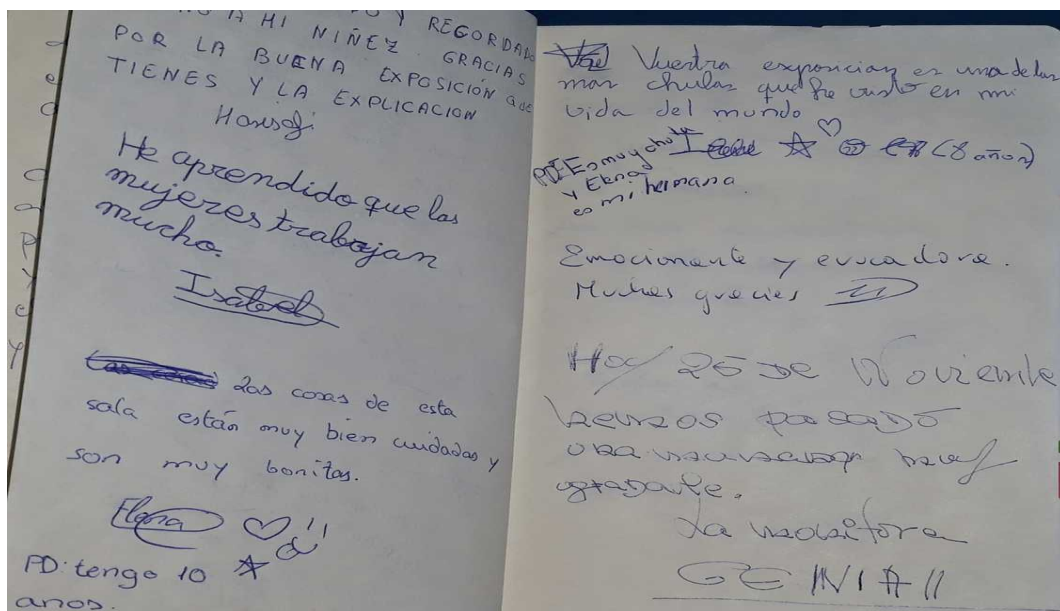 A MI NIÑEZ Y REGORDADO
POR LA BUENA EXPOSICIÓN QUE
TIENES Y LA EXPLICACION GRACIAS
He aprendido que las
mujeres trabajan
mucho.
Isabel
Las cosas de esta
sala están muy bien cuidadas y
son muy bonitas.
Elena
PD: tengo 10
anos.
Vuestra exposicion es una de las
mas chulas que he visto en mi
vida del mundo
(8 años)
PD: Es muy chula
y Elena
es mi hermana.
Emocionante y evocadora.
Muchas gracies
Hoy 25 de Noviembre
hemos pasado
una muy
agradable.
La
GENIAL